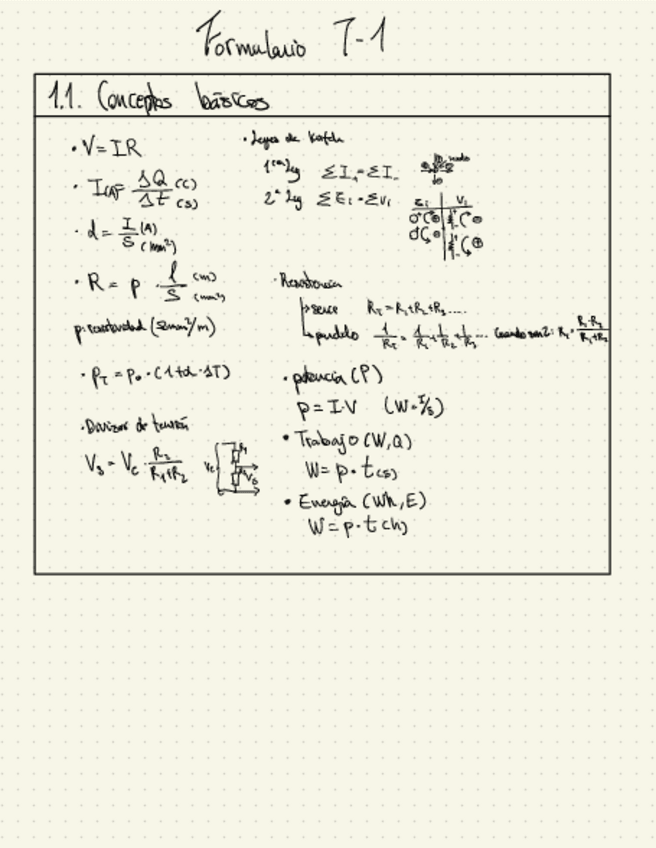 Formulario T-1
1.1. Conceptos básicos
· V = IR
· I(A) = ΔQ (C) / Δt (s)
· d = I (A) / S (mm²)
· R = ρ · l (m) / S (mm²)
ρ: resistividad (Ωmm²/m)
· ρT = ρ0 · (1+α · ΔT)
· Divisor de tensión
Vs = Vc · R2 / R1+R2
Vc R1 R2 Vs
· Leyes de
1ª Ley ΣI+ = ΣI- nudo
2ª Ley ΣEi = ΣVi
Ei Vi
· Resistencia
serie RT = R1+R2+R3 ....
paralelo 1/RT = 1/R1 + 1/R2 + 1/R3 ... Cuando son 2: RT = R1·R2 / R1+R2
· potencia (P)
p = I·V (W = J/s)
· Trabajo (W, Q)
W = p · t (s)
· Energía (Wh, E)
W = p · t (h)